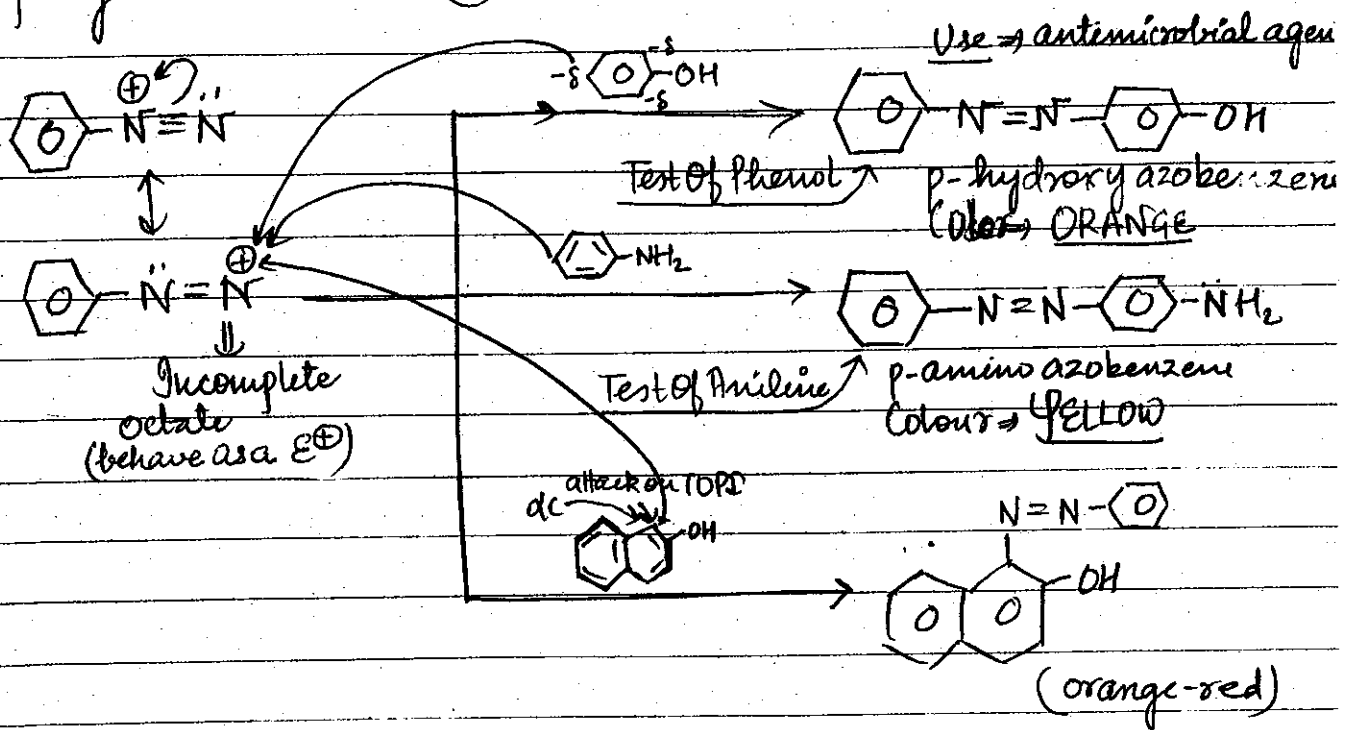 Use ⇒ antimicrobial agen
⊕ N≡N̈
-δ -δ -δ OH
N=N OH
Test Of Phenol
p-hydroxy azobenzene
Color→ ORANGE
N̈=N ⊕
NH₂
N=N N̈H₂
Incomplete
octate
(behave as a E⊕)
Test Of Aniline
p-amino azobenzene
Colour⇒ YELLOW
attack on
αC
OH
N=N
OH
(orange-red)